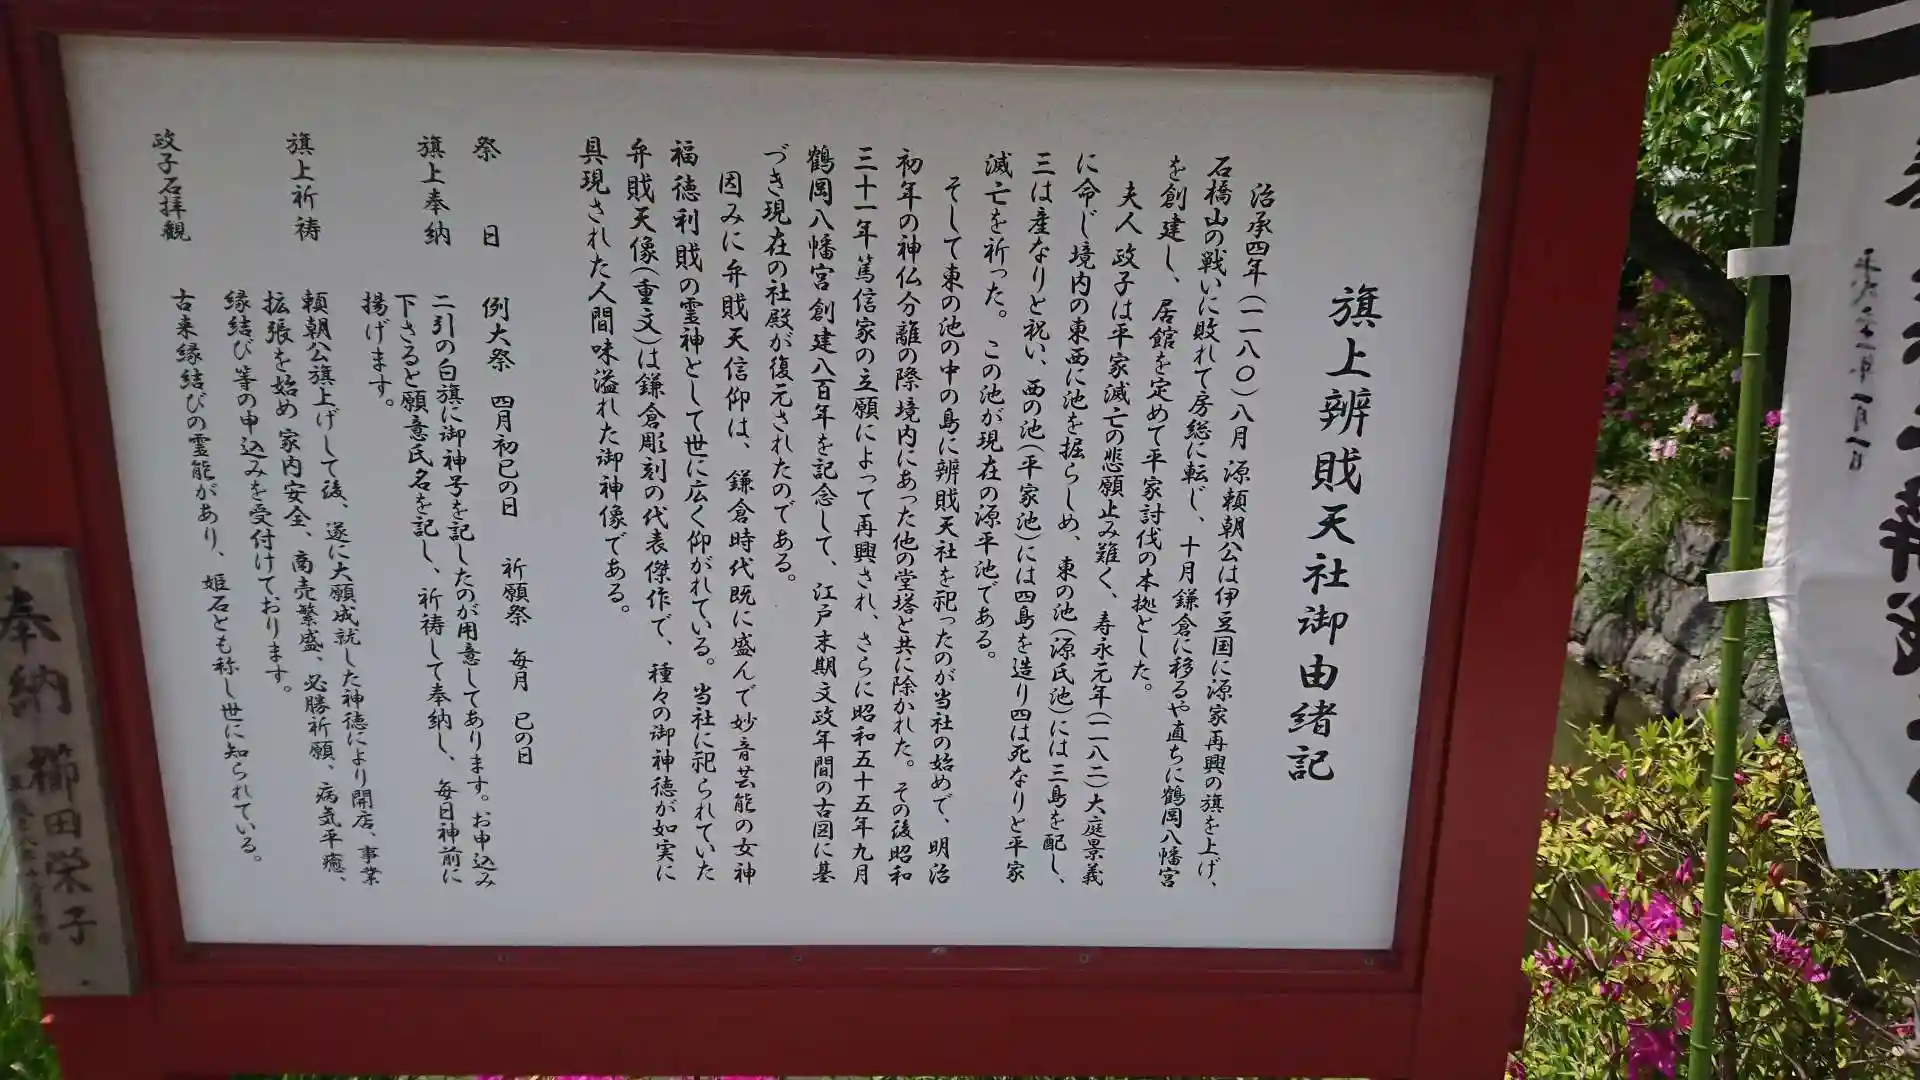 旗上辨財天社御由緒記
治承四年(一一八〇)八月 源頼朝公は伊豆国に源家再興の旗を上げ、
石橋山の戦いに敗れて房総に転じ、十月鎌倉に移るや直ちに鶴岡八幡宮
を創建し、居館を定めて平家討伐の本拠とした。
夫人 政子は平家滅亡の悲願止み難く、寿永元年(一一八二)大庭景義
に命じ境内の東西に池を掘らしめ、東の池(源氏池)には三島を配し、
三は産なりと祝い、西の池(平家池)には四島を造り四は死なりと平家
滅亡を祈った。この池が現在の源平池である。
そして東の池の中の島に辨財天社を祀ったのが当社の始めで、明治
初年の神仏分離の際境内にあった他の堂塔と共に除かれた。その後昭和
三十一年篤信家の立願によって再興され、さらに昭和五十五年九月
鶴岡八幡宮創建八百年を記念して、江戸末期文政年間の古図に基
づき現在の社殿が復元されたのである。
因みに弁財天信仰は、鎌倉時代既に盛んで妙音芸能の女神
福徳利財の霊神として世に広く仰がれている。当社に祀られていた
弁財天像(重文)は鎌倉彫刻の代表傑作で、種々の御神徳が如実に
具現された人間味溢れた御神像である。
祭 日 例大祭 四月初巳の日 祈願祭 毎月 巳の日
旗上奉納 二引の白旗に御神号を記したのが用意してあります。お申込み
下さると願意氏名を記し、祈祷して奉納し、毎日神前に
揚げます。
旗上祈祷 頼朝公旗上げして後、遂に大願成就した神徳により開店、事業
拡張を始め 家内安全、商売繁盛、必勝祈願、病気平癒、
縁結び等の申込みを受付けております。
政子石拝観 古来縁結びの霊能があり、姫石とも称し世に知られている。
奉納 櫛田栄子